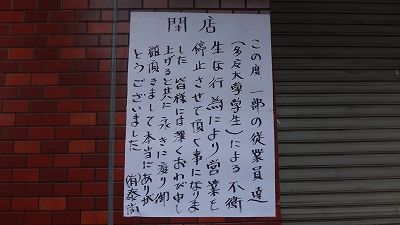 閉店
この度 一部の従業員達
(多摩大学学生)による 不衛
生な行為により営業を
停止させて頂く事になりま
した 皆様には深くおわび申し
上げると共に永きに渡り御
愛顧頂きまして本当にありが
とうございました
㈲泰尚